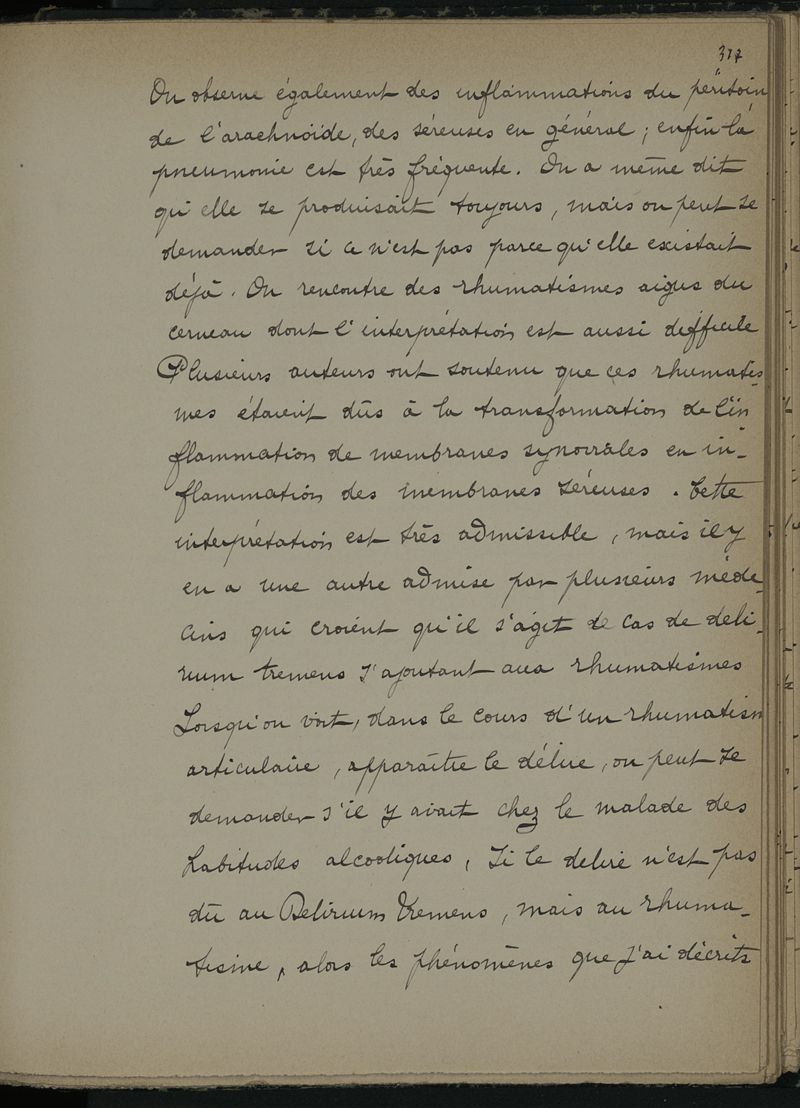 317
On observe également des inflammations du péritoin
de l'arachnoïde, des séreuses en général ; enfin la
pneumonie est très fréquente. On a même dit
qu'elle se produisait toujours, mais on peut se
demander si ce n'est pas parce qu'elle existait
déjà. On rencontre des rhumatismes aigus du
cerveau dont l'interprétation est aussi difficile
Plusieurs auteurs ont soutenu que ces rhumatis-
mes étaient dûs à la transformation de l'in
flammation de membranes synoviales en in-
flammation des membranes séreuses. Cette
interprétation est très admissible, mais il y
en a une autre admise par plusieurs méde-
cins qui croient qu'il s'agit de cas de deli-
rium tremens s'ajoutant aux rhumatismes
Lorsqu'on voit, dans le cours d'un rhumatism
articulaire, apparaître le délire, on peut se
demander s'il y avait chez le malade des
habitudes alcooliques, si le delire n'est pas
dû au Delirium Tremens, mais au rhuma-
tisme, alors les phénomènes que j'ai décrits